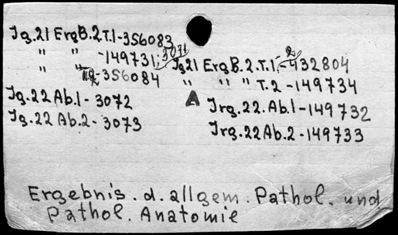 Jg. 21 Erg B. 2 T. 1 - 356083
" " - 149731, 3071
" " T. 2 - 356084
Jg. 22 Ab. 1 - 3072
Jg. 22 Ab. 2 - 3073
Jg. 21 Erg B. 2. T. 1. - 432804
" " " T. 2 - 149734
A
Jrg. 22. Ab. 1 - 149732
Jrg. 22 Ab. 2 - 149733
Ergebnis. d. allgem. Pathol. und
Pathol. Anatomie